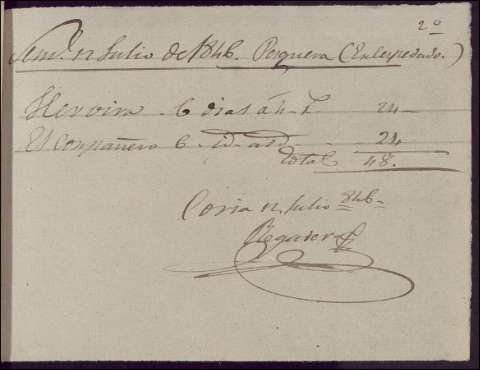 2º
Semª 12 Julio de 1846. Pesquera (Enlespedado.)
Hervira 6 dias á 4 - 24 -
El Compañero 6 - id - a id - 24
total 48.
Coria 12 Julio 846 -
Regadera